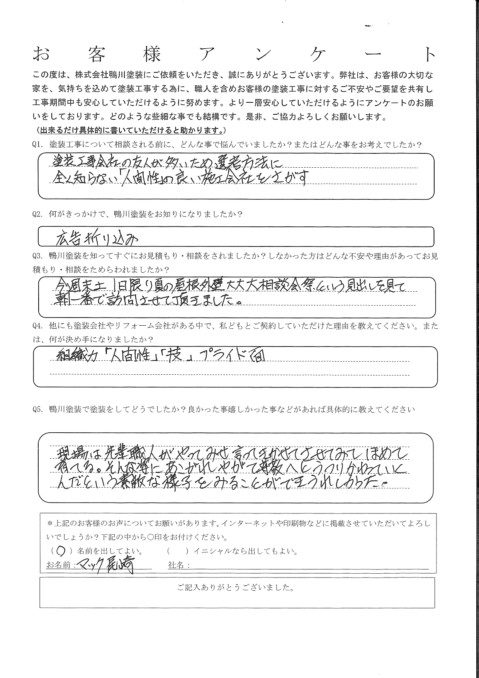 お客様アンケート
この度は、株式会社鴨川塗装にご依頼をいただき、誠にありがとうございます。弊社は、お客様の大切な
家を、気持ちを込めて塗装工事する為に、職人を含めお客様の塗装工事に対するご不安やご要望を共有し
工事期間中も安心していただけるように努めます。より一層安心していただけるようにアンケートのお願
いをしております。どのような些細な事でも結構です。是非、ご協力よろしくお願いします。
(出来るだけ具体的に書いていただけると助かります。)
Q1. 塗装工事について相談される前に、どんな事で悩んでいましたか？またはどんな事をお考えでしたか？
塗装工事会社の友人が多いため選考方法に
全く知らない「人間性」の良い施工会社をさがす
Q2. 何がきっかけで、鴨川塗装をお知りになりましたか？
広告折り込み
Q3. 鴨川塗装を知ってすぐにお見積もり・相談をされましたか？しなかった方はどんな不安や理由があってお見
積もり・相談をためらわれましたか？
今週末土 1日限り夏の屋根外壁大大大相談会祭という見出しを見て
朝一番で訪問させて頂きました。
Q4. 他にも塗装会社やリフォーム会社がある中で、私どもとご契約していただけた理由を教えてください。また
は、何が決め手になりましたか？
組織力「人間性」「技」プライド面
Q5. 鴨川塗装で塗装をしてどうでしたか？良かった事嬉しかった事などがあれば具体的に教えてください
現場は先輩職人がやってみせ言ってきかせてさせてみて ほめて
育てる。そんな姿にあこがれしやがて尊敬へとうつりかわっていく
んだという素敵な様子をみることができうれしかった。
※上記のお客様のお声についてお願いがあります。インターネットや印刷物などに掲載させていただいてよろし
いでしょうか？下記の中から○印をお付けください。
(○) 名前を出してよい。 ( ) イニシャルなら出してもよい。
お名前：マック尾崎 社名：
ご記入ありがとうございました。